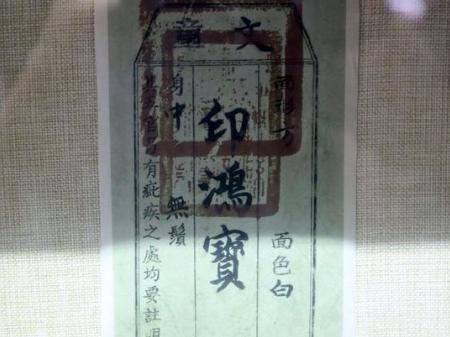 文童
面色白
印鴻寶
身中 無鬚
有疵疾之處均要註明